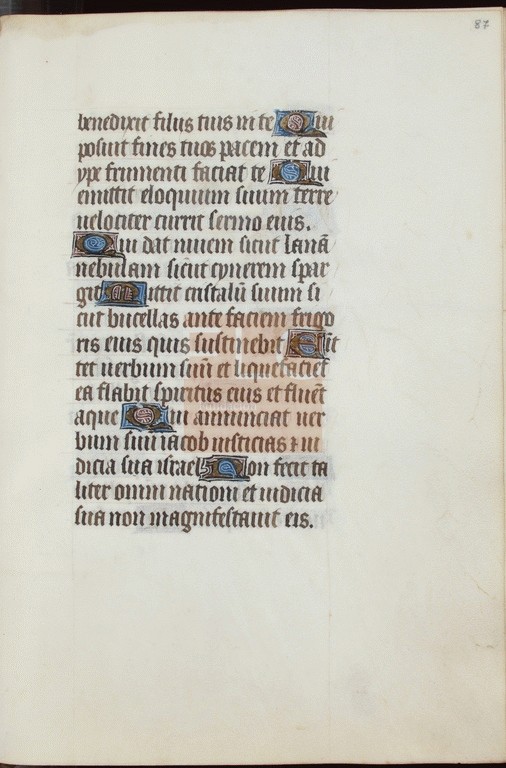 87
benedixit filiis tuis in te Qui
posuit fines tuos pacem et ad
ype frumenti faciat te Qui
emittit eloquium suum terre
uelociter currit sermo eius.
Qui dat niuem sicut lanã
nebulam sicut cynerem spar
git Mittit cristalũ suum si
cut bucellas ante faciem frigo
ris eius quis sustinebit Emit
tet uerbum suũ et liquefaciet
ea flabit spiritus eius et fluẽt
aque Qui annunciat uer
bum suũ iacob iusticias ⁊ iu
dicia sua israel Non fecit ta
liter omni nationi et iudicia
sua non magnifestauit eis.